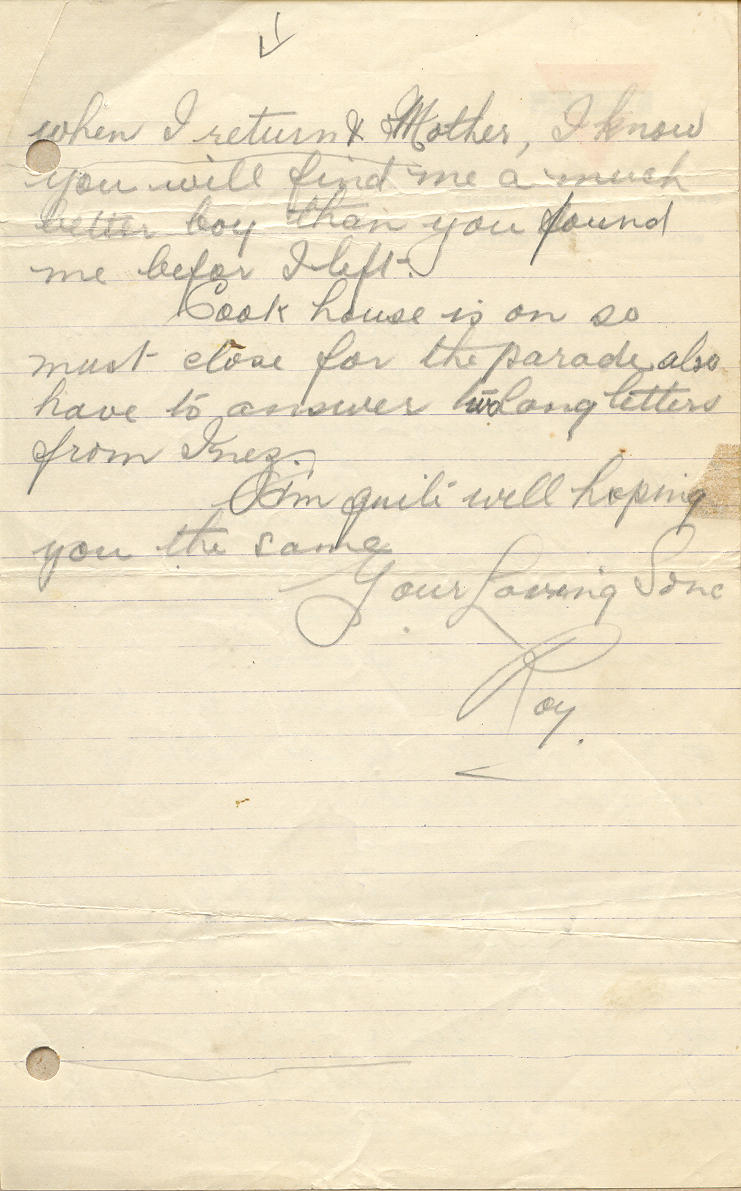 when I return & Mother, I know
you will find me a much
better boy than you found
me befor I left.
Cook house is on so
must close for the parade also
have to answer two long letters
from Inez.
I'm quite well hoping
you the same
Your Loving Sone
Roy.